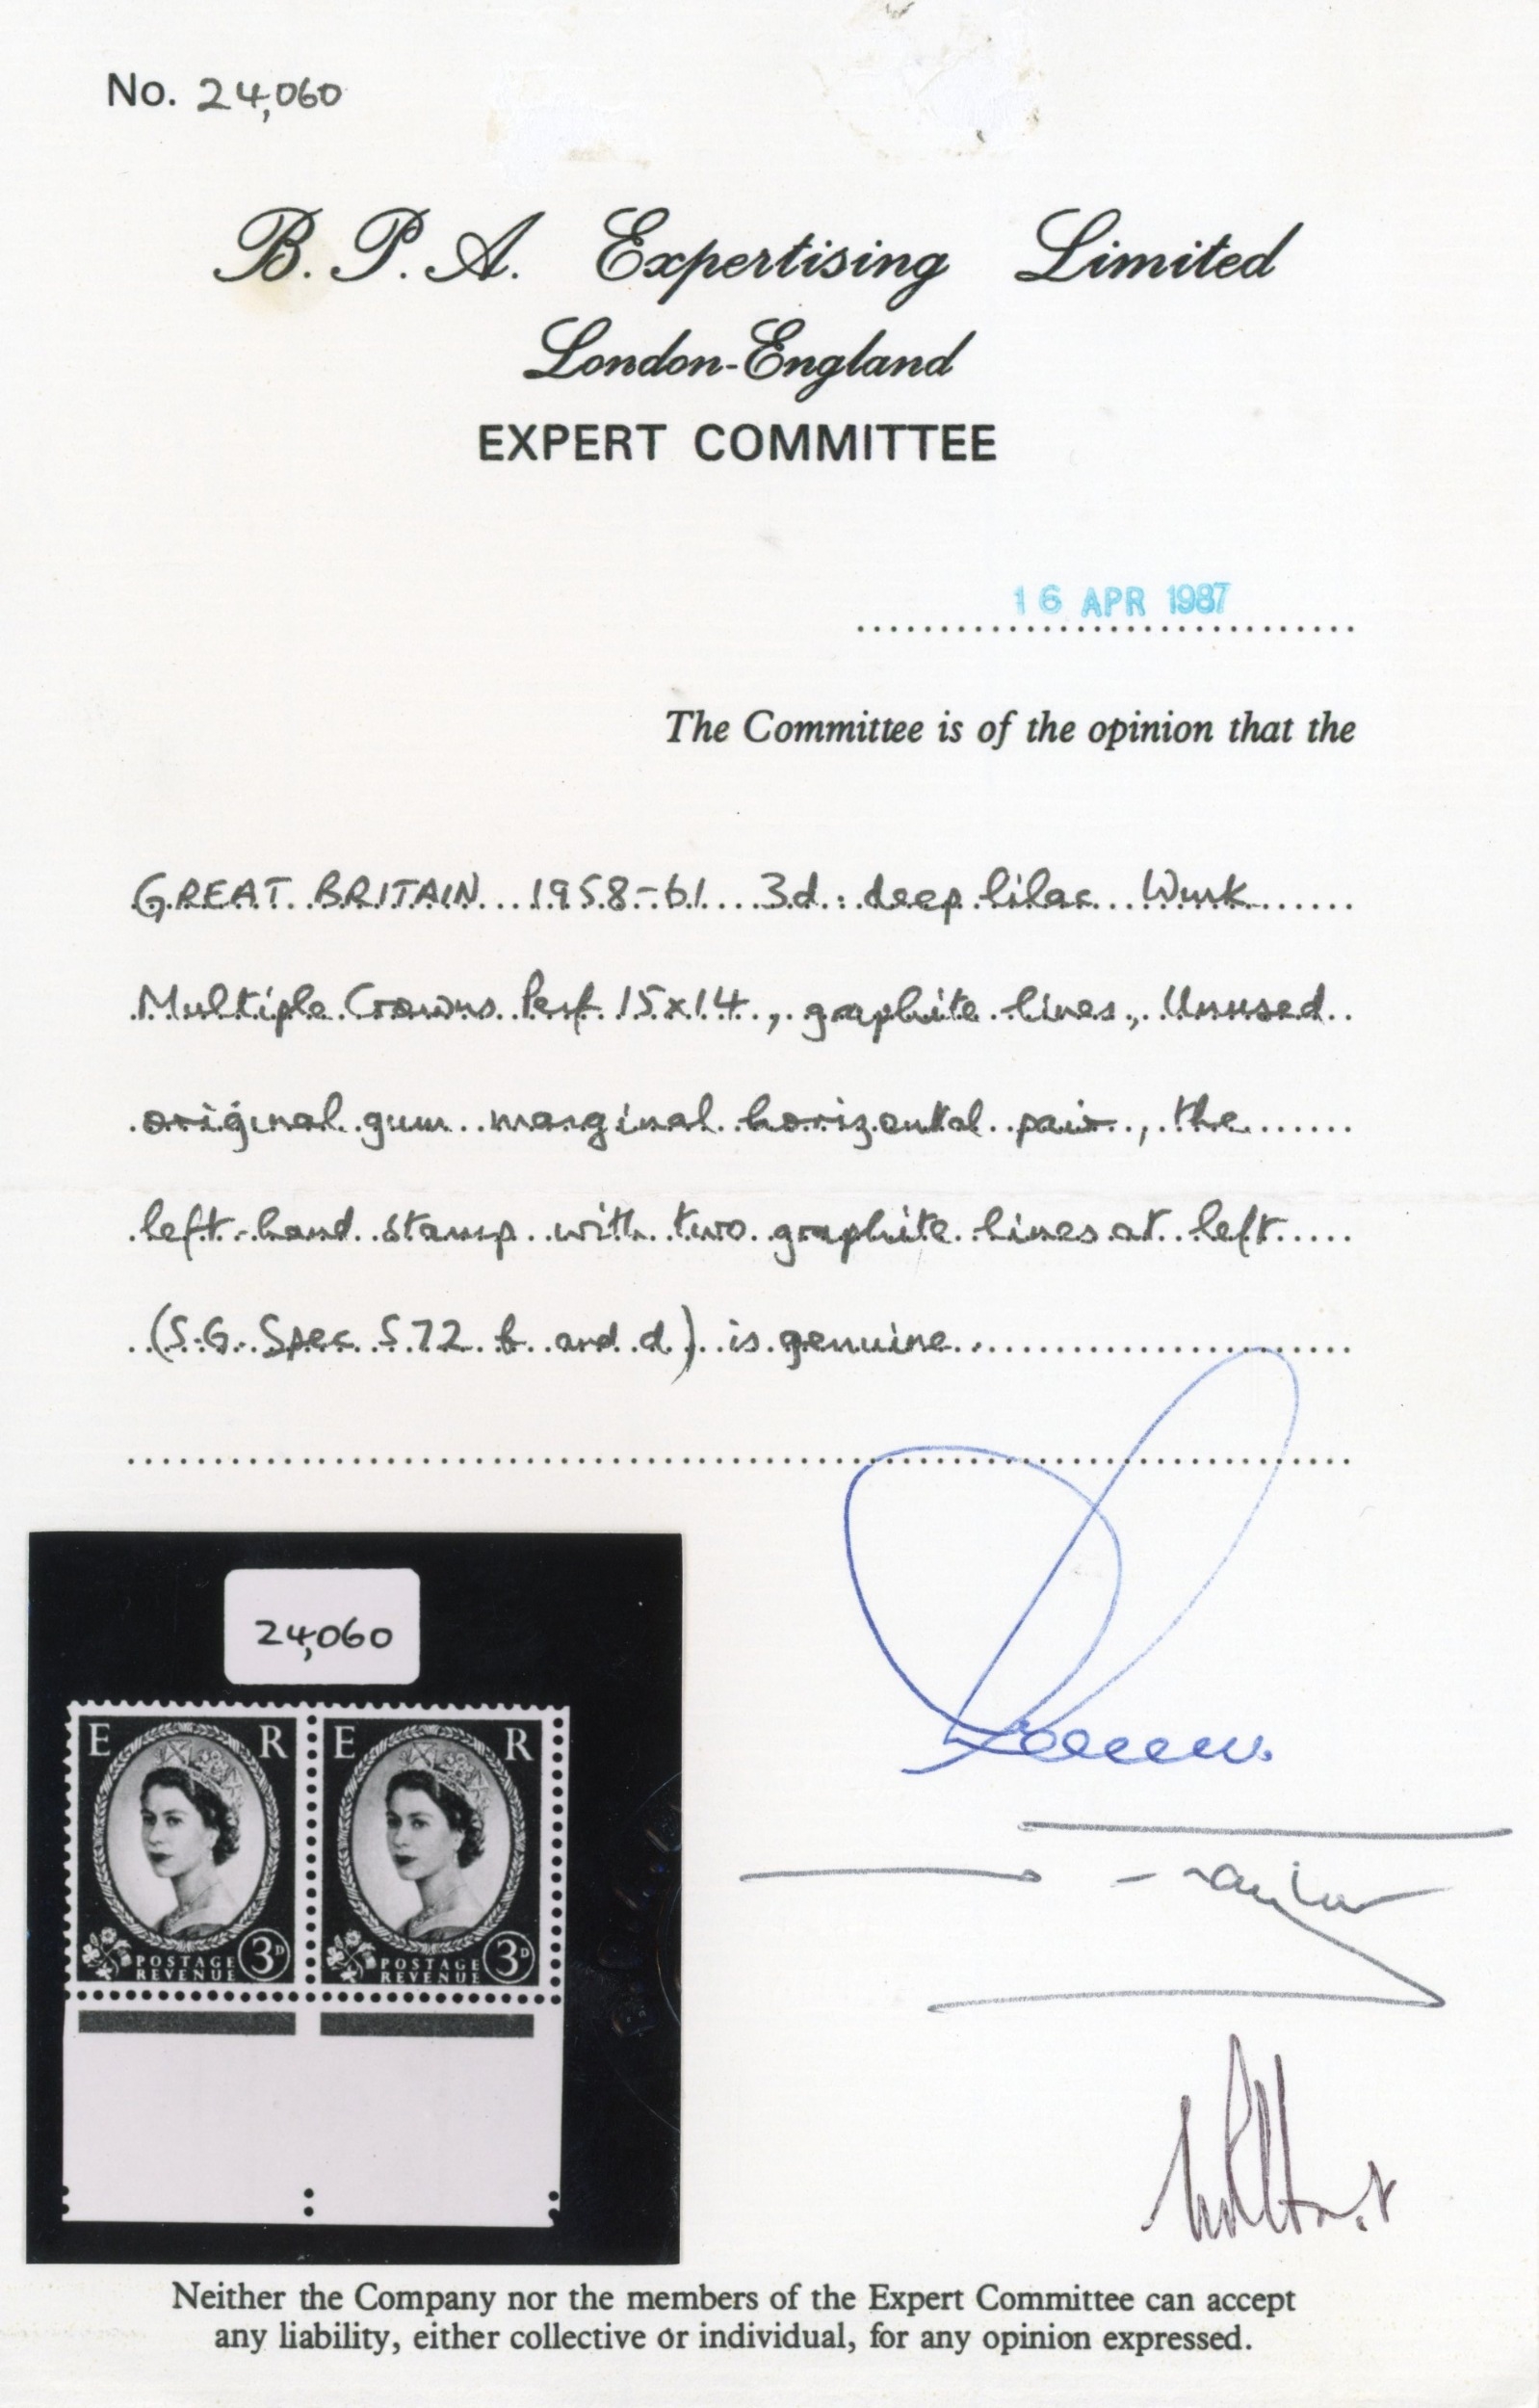 No. 24,060
B. P. A. Expertising Limited
London-England
EXPERT COMMITTEE
16 APR 1987
The Committee is of the opinion that the
GREAT BRITAIN 1958-61 3d. deep lilac Wmk
Multiple Crowns Perf 15x14, graphite lines, Unused
original gum marginal horizontal pair, the
left-hand stamp with two graphite lines at left
(S.G. Spec S72 b and d) is genuine.
24,060
E R E R
3D 3D
POSTAGE POSTAGE
REVENUE REVENUE
Neither the Company nor the members of the Expert Committee can accept
any liability, either collective or individual, for any opinion expressed.